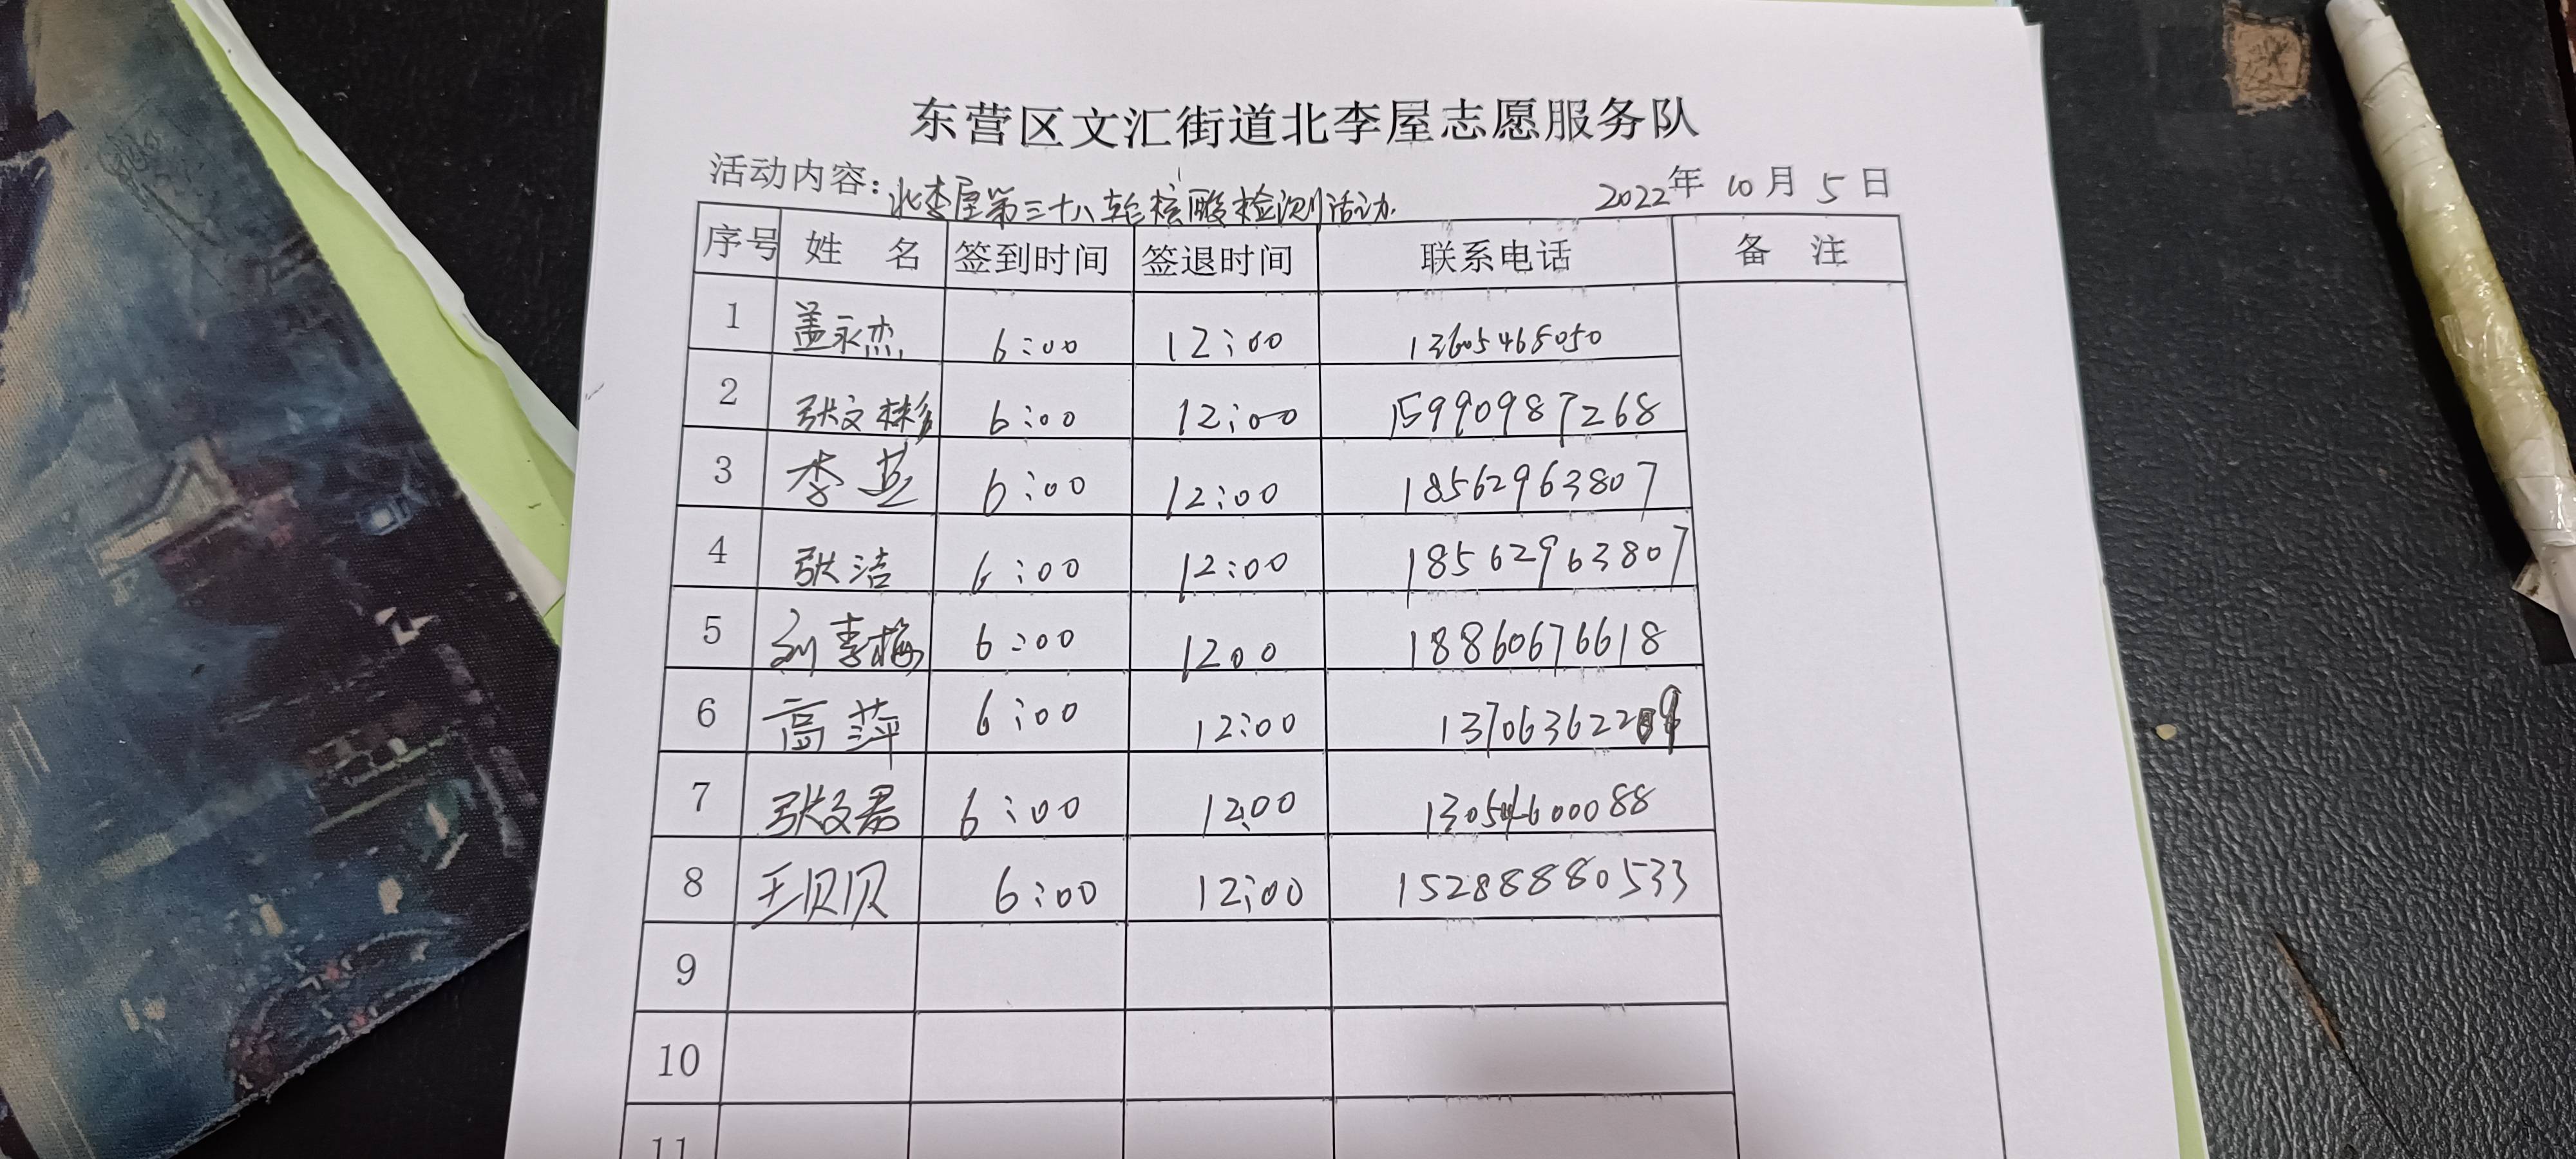 东营区文汇街道北李屋志愿服务队
活动内容：北李屋第三十八轮核酸检测活动 2022年10月5日
序号 姓 名 签到时间 签退时间 联系电话 备 注
1 盖永杰 6:00 12:00 13605468050
2 张文彬 6:00 12:00 15990987268
3 李燕 6:00 12:00 18562963807
4 张洁 6:00 12:00 18562963807
5 刘春梅 6:00 1200 18860676618
6 高萍 6:00 12:00
7 张文君 6:00 12:00 13054600088
8 王贝贝 6:00 12:00 15288880533
9
10
11